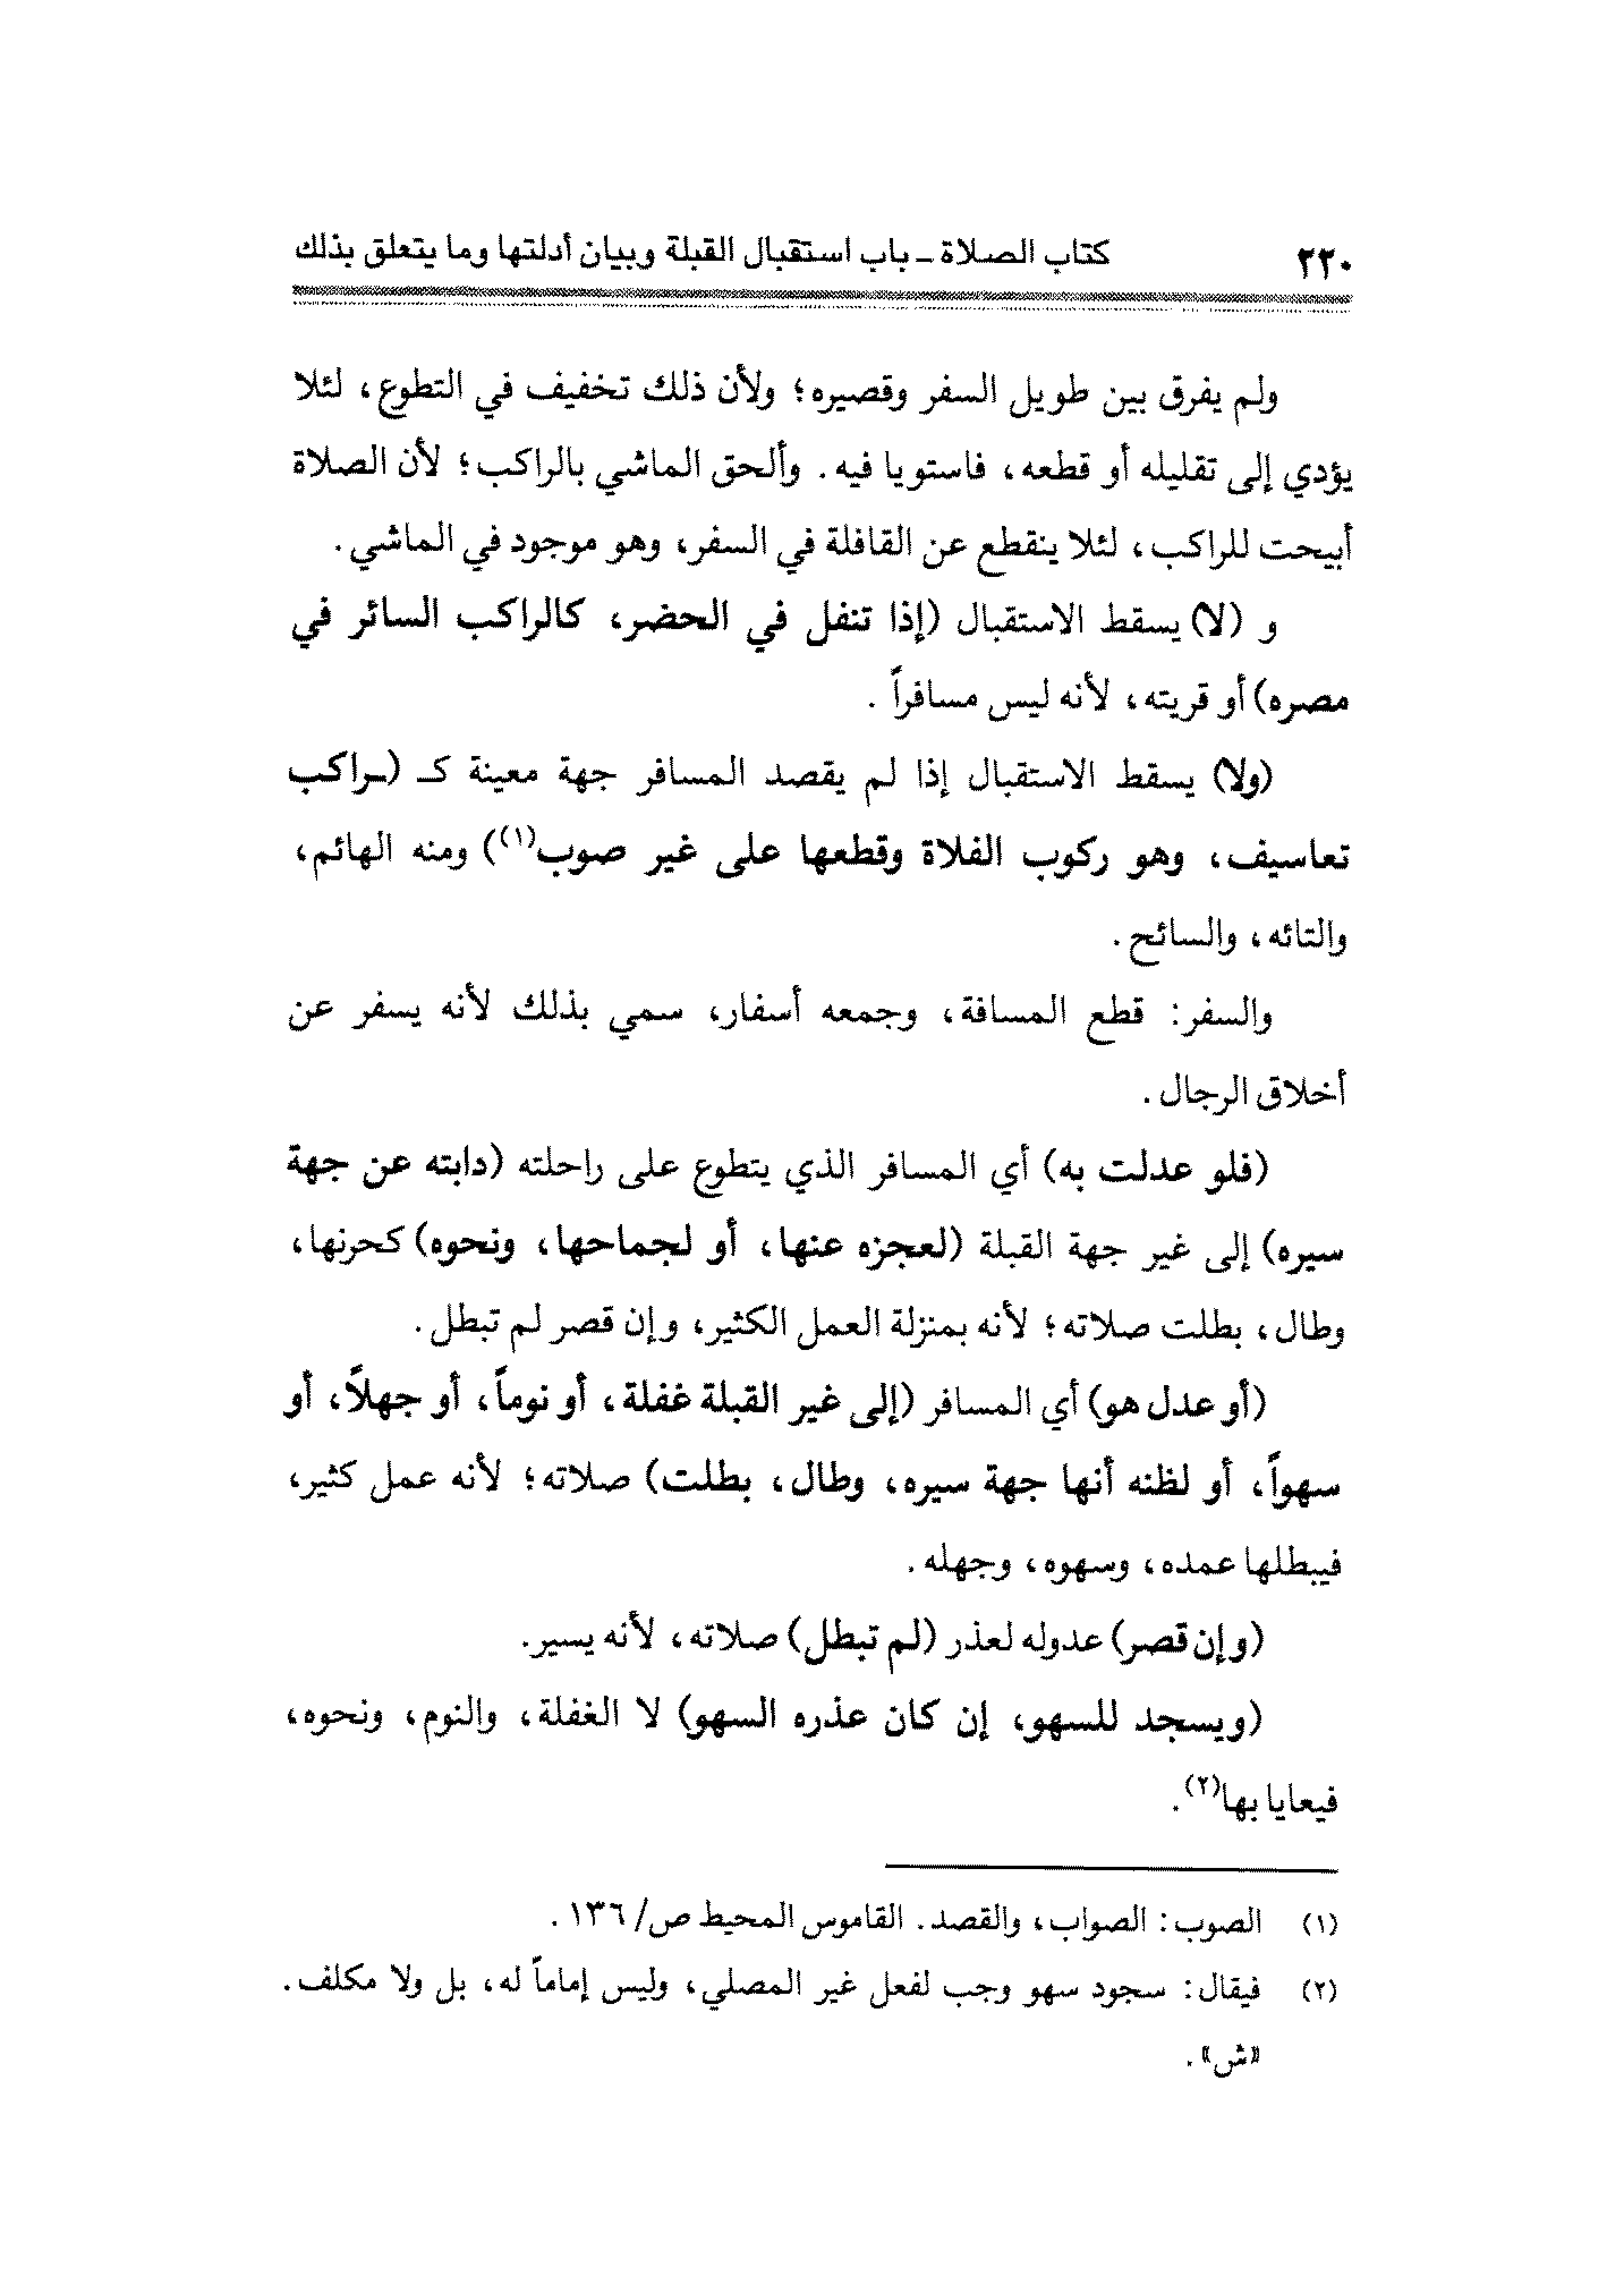 ٢٢٠ كتاب الصلاة ـ باب استقبال القبلة وبيان أدلتها وما يتعلق بذلك
ولم يفرق بين طويل السفر وقصيره؛ ولأن ذلك تخفيف في التطوع، لئلا
يؤدي إلى تقليله أو قطعه، فاستويا فيه. وألحق الماشي بالراكب؛ لأن الصلاة
أبيحت للراكب، لئلا ينقطع عن القافلة في السفر، وهو موجود في الماشي.
و (لا) يسقط الاستقبال (إذا تنفل في الحضر، كالراكب السائر في
مصره) أو قريته، لأنه ليس مسافراً.
(ولا) يسقط الاستقبال إذا لم يقصد المسافر جهة معينة كـ (ـراكب
تعاسيف، وهو ركوب الفلاة وقطعها على غير صوب(١)) ومنه الهائم،
والتائه، والسائح.
والسفر: قطع المسافة، وجمعه أسفار، سمي بذلك لأنه يسفر عن
أخلاق الرجال.
(فلو عدلت به) أي المسافر الذي يتطوع على راحلته (دابته عن جهة
سيره) إلى غير جهة القبلة (لعجزه عنها، أو لجماحها، ونحوه) كحرنها،
وطال، بطلت صلاته؛ لأنه بمنزلة العمل الكثير، وإن قصر لم تبطل.
(أو عدل هو) أي المسافر (إلى غير القبلة غفلة، أو نوماً، أو جهلاً، أو
سهواً، أو لظنه أنها جهة سيره، وطال، بطلت) صلاته؛ لأنه عمل كثير،
فيبطلها عمده، وسهوه، وجهله.
(وإن قصر) عدوله لعذر (لم تبطل) صلاته، لأنه يسير.
(ويسجد للسهو، إن كان عذره السهو) لا الغفلة، والنوم، ونحوه،
فيعايا بها(٢).
(١) الصوب: الصواب، والقصد. القاموس المحيط ص/ ١٣٦.
(٢) فيقال: سجود سهو وجب لفعل غير المصلي، وليس إماماً له، بل ولا مكلف.
«ش».